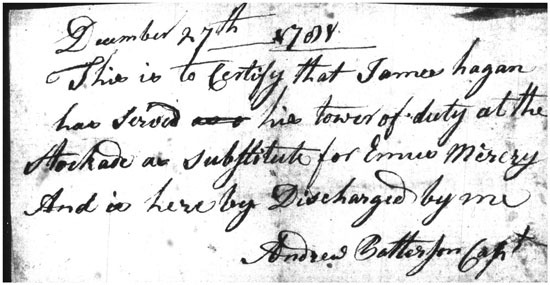 December 27th 1781
This is to Certify that James hagan
has served his tower of duty at the
Stockade as substitute for Ennis Mercry
And is here by Discharged by me
Andrew Batterson Capt